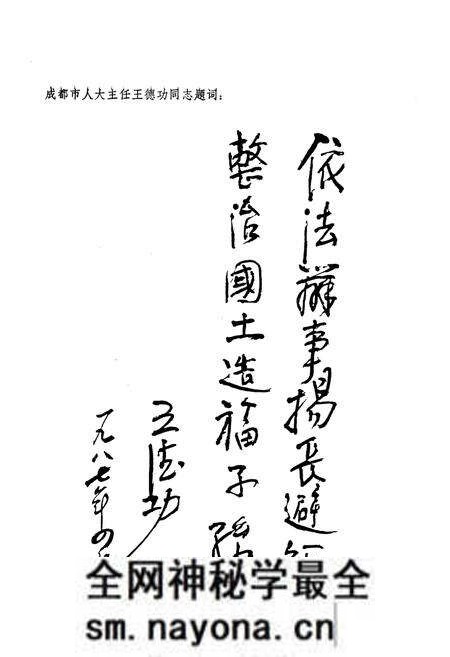 成都市人大主任王德功同志题词：
依法辦事揚長避
整治國土造福子孫
王德功
一九八七年四
全网神秘学最全
sm.nayona.cn